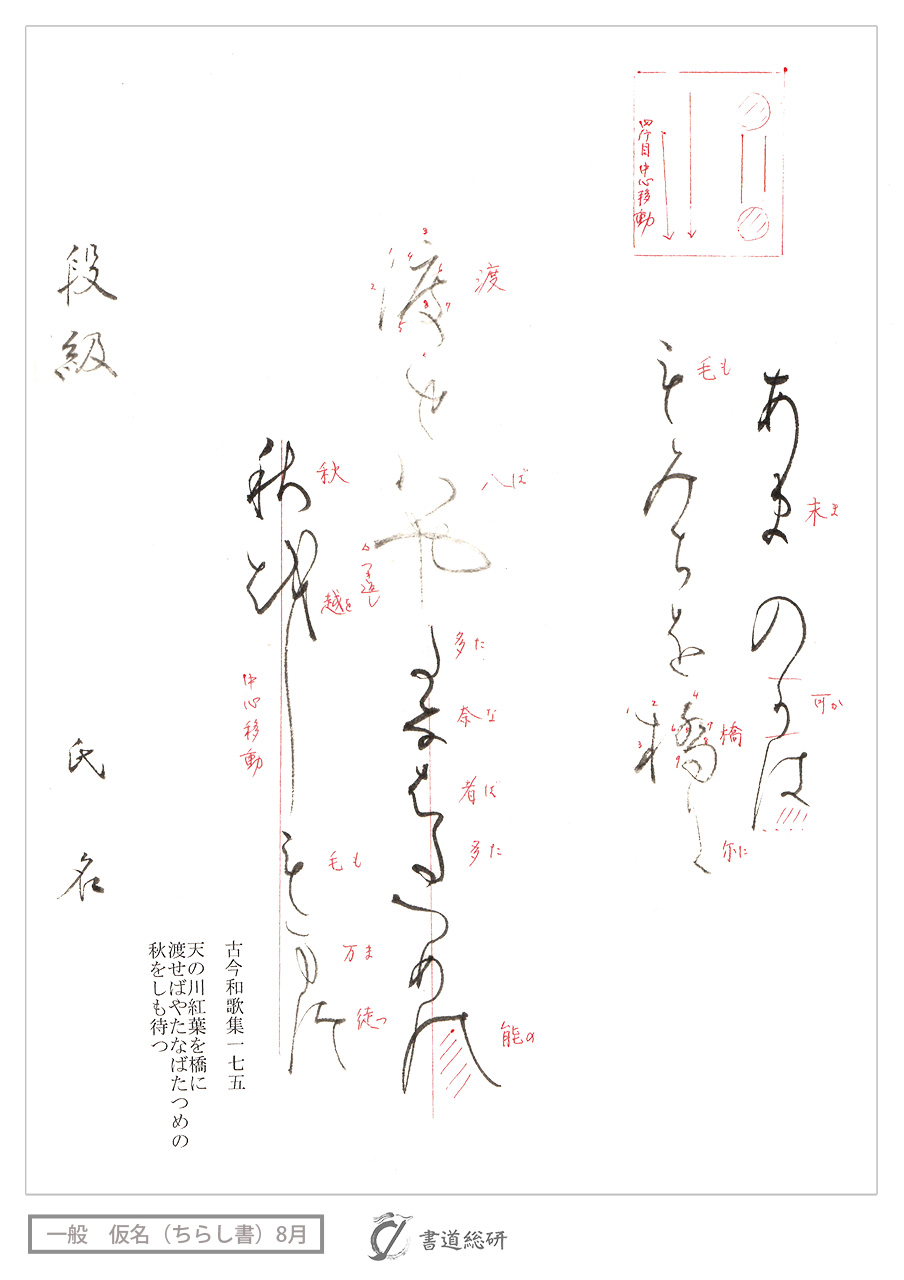 四行目中心移動
あま
のかは
もみちを橋に
渡せはや
たなはたつめの
秋をし
もまつ
末ま
可か
毛も
橋
尓に
渡
八ば
多た
奈な
者ば
多た
能の
秋
越を
中心移動
毛も
万ま
徒つ
段級
氏名
古今和歌集一七五
天の川紅葉を橋に
渡せばやたなばたつめの
秋をしも待つ
一般 仮名（ちらし書）8月
書道総研